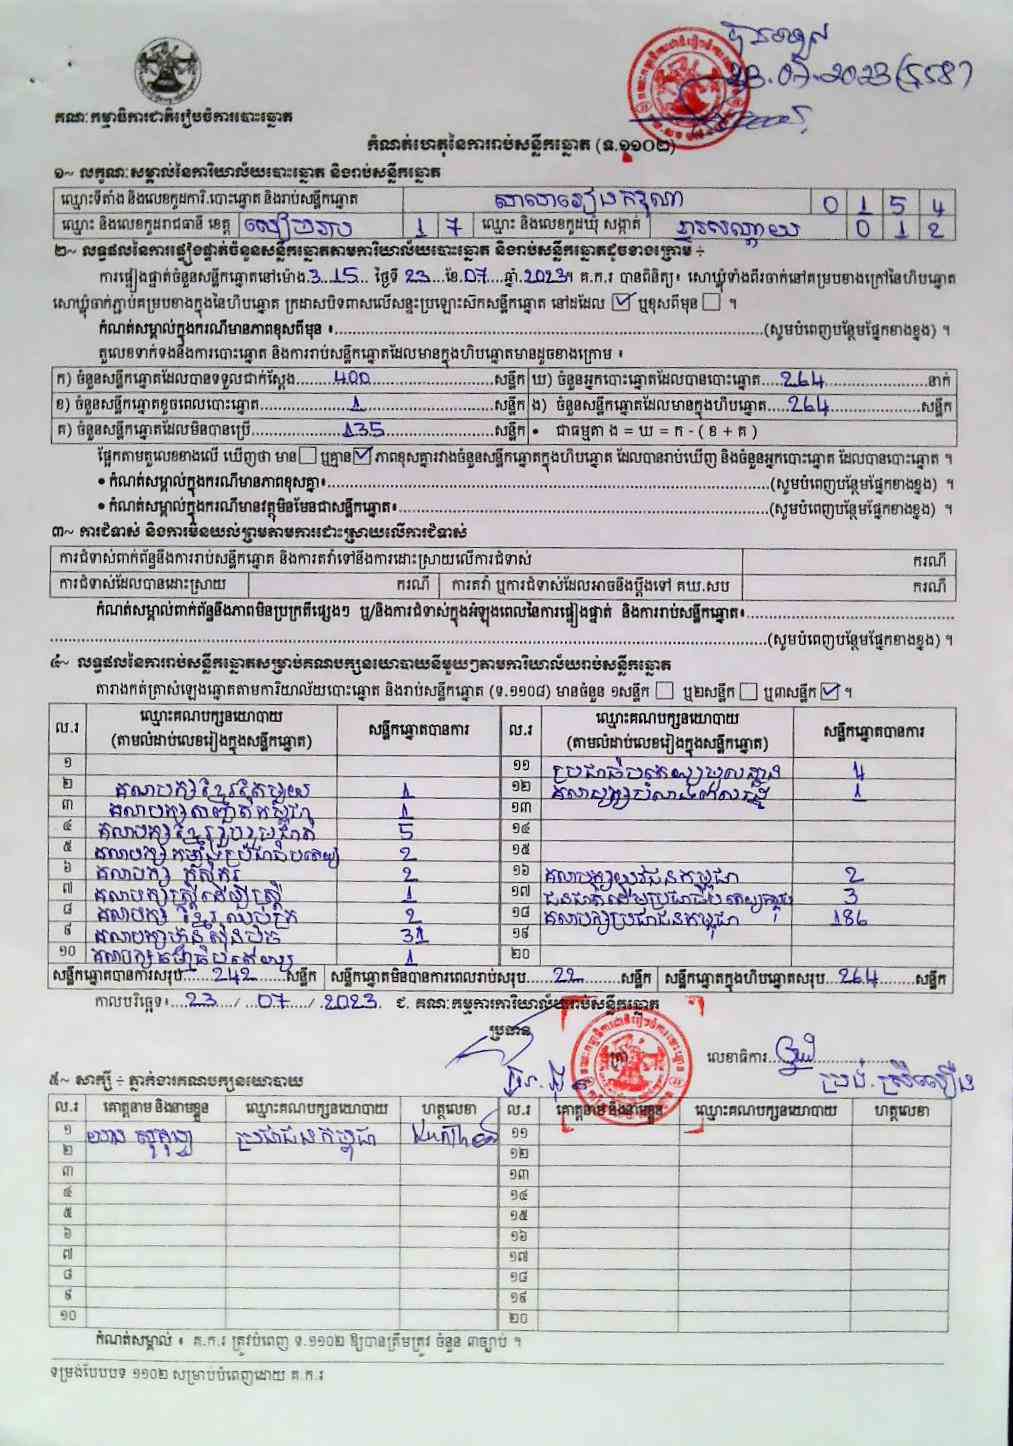 គណៈកម្មាធិការជាតិរៀបចំការបោះឆ្នោត
23.07.2023
កំណត់ហេតុនៃការរាប់សន្លឹកឆ្នោត (ទ.១១០២)
១~ លក្ខណៈសម្គាល់នៃការិយាល័យបោះឆ្នោត និងរាប់សន្លឹកឆ្នោត
ឈ្មោះទីតាំង និងលេខកូដការិ.បោះឆ្នោត និងរាប់សន្លឹកឆ្នោត 0 1 5 4
ឈ្មោះ និងលេខកូដរាជធានី ខេត្ត សៀមរាប 1 7 ឈ្មោះ និងលេខកូដឃុំ សង្កាត់ 0 1 2
២~ លទ្ធផលនៃការផ្ទៀងផ្ទាត់ចំនួនសន្លឹកឆ្នោតតាមការិយាល័យបោះឆ្នោត និងរាប់សន្លឹកឆ្នោតដូចខាងក្រោម ÷
ការផ្ទៀងផ្ទាត់ចំនួនសន្លឹកឆ្នោតនៅម៉ោង 3.15 ថ្ងៃទី 23 ខែ 07 ឆ្នាំ 2023។ គ.ក.រ បានពិនិត្យ៖ សោឃ្លុំទាំងពីរចាក់នៅគម្របខាងក្រៅនៃហិបឆ្នោត
សោឃ្លុំចាក់ភ្ជាប់គម្របខាងក្នុងនៃហិបឆ្នោត ក្រដាសបិទពាសលើសន្ទះប្រឡោះសិកសន្លឹកឆ្នោត នៅដដែល ☑ ឬខុសពីមុន ☐ ។
កំណត់សម្គាល់ក្នុងករណីមានភាពខុសពីមុន ៖ (សូមបំពេញបន្ថែមផ្នែកខាងខ្នង) ។
តួលេខទាក់ទងនឹងការបោះឆ្នោត និងការរាប់សន្លឹកឆ្នោតដែលមានក្នុងហិបឆ្នោតមានដូចខាងក្រោម ៖
ក) ចំនួនសន្លឹកឆ្នោតដែលបានទទួលជាក់ស្តែង 400 សន្លឹក ឃ) ចំនួនអ្នកបោះឆ្នោតដែលបានបោះឆ្នោត 264 នាក់
ខ) ចំនួនសន្លឹកឆ្នោតខូចពេលបោះឆ្នោត 1 សន្លឹក ង) ចំនួនសន្លឹកឆ្នោតដែលមានក្នុងហិបឆ្នោត 264 សន្លឹក
គ) ចំនួនសន្លឹកឆ្នោតដែលមិនបានប្រើ 135 សន្លឹក • ជាធម្មតា ង = ឃ = ក - ( ខ + គ )
ផ្អែកតាមតួលេខខាងលើ ឃើញថា មាន ☐ ឬគ្មាន ☑ ភាពខុសគ្នារវាងចំនួនសន្លឹកឆ្នោតក្នុងហិបឆ្នោត ដែលបានរាប់ឃើញ និងចំនួនអ្នកបោះឆ្នោត ដែលបានបោះឆ្នោត ។
• កំណត់សម្គាល់ក្នុងករណីមានភាពខុសគ្នា៖ (សូមបំពេញបន្ថែមផ្នែកខាងខ្នង) ។
• កំណត់សម្គាល់ក្នុងករណីមានវត្ថុមិនមែនជាសន្លឹកឆ្នោត៖ (សូមបំពេញបន្ថែមផ្នែកខាងខ្នង) ។
៣~ ការជំទាស់ និងការមិនយល់ព្រមតាមការដោះស្រាយលើការជំទាស់
ការជំទាស់ពាក់ព័ន្ធនឹងការរាប់សន្លឹកឆ្នោត និងការតវ៉ាទៅនឹងការដោះស្រាយលើការជំទាស់ ករណី
ការជំទាស់ដែលបានដោះស្រាយ ករណី ការតវ៉ា ឬការជំទាស់ដែលអាចនឹងប្តឹងទៅ គឃ.សប ករណី
កំណត់សម្គាល់ពាក់ព័ន្ធនឹងភាពមិនប្រក្រតីផ្សេងៗ ឬ/និងការជំទាស់ក្នុងអំឡុងពេលនៃការផ្ទៀងផ្ទាត់ និងការរាប់សន្លឹកឆ្នោត៖
(សូមបំពេញបន្ថែមផ្នែកខាងខ្នង) ។
៤~ លទ្ធផលនៃការរាប់សន្លឹកឆ្នោតសម្រាប់គណបក្សនយោបាយនីមួយៗតាមការិយាល័យរាប់សន្លឹកឆ្នោត
តារាងកត់ត្រាសំឡេងឆ្នោតតាមការិយាល័យបោះឆ្នោត និងរាប់សន្លឹកឆ្នោត (ទ.១១០៨) មានចំនួន ១សន្លឹក ☐ ឬ២សន្លឹក ☐ ឬ៣សន្លឹក ☑ ។
ល.រ ឈ្មោះគណបក្សនយោបាយ (តាមលំដាប់លេខរៀងក្នុងសន្លឹកឆ្នោត) សន្លឹកឆ្នោតបានការ ល.រ ឈ្មោះគណបក្សនយោបាយ (តាមលំដាប់លេខរៀងក្នុងសន្លឹកឆ្នោត) សន្លឹកឆ្នោតបានការ
១ ១១ 4
២ 1 ១២ 1
៣ 1 ១៣
៤ គណបក្សខ្មែររួបរួមជាតិ 5 ១៤
៥ គណបក្សកម្លាំងប្រជាធិបតេយ្យ 2 ១៥
៦ គណបក្ស កសិករ 2 ១៦ គណបក្សយុវជនកម្ពុជា 2
៧ គណបក្សស្ត្រីដើម្បីស្ត្រី 1 ១៧ 3
៨ គណបក្ស ខ្មែរ ឈប់ក្រ 2 ១៨ គណបក្សប្រជាជនកម្ពុជា 186
៩ គណបក្សហ្វ៊ុនស៊ិនប៉ិច 31 ១៩
១០ 1 ២០
សន្លឹកឆ្នោតបានការសរុប 242 សន្លឹក សន្លឹកឆ្នោតមិនបានការពេលរាប់សរុប 22 សន្លឹក សន្លឹកឆ្នោតក្នុងហិបឆ្នោតសរុប 264 សន្លឹក
កាលបរិច្ឆេទ៖ 23 / 07 / 2023 ជ. គណៈកម្មការការិយាល័យរាប់សន្លឹកឆ្នោត
ប្រធាន ត្រា លេខាធិការ
៥~ សាក្សី ÷ ភ្នាក់ងារគណបក្សនយោបាយ
ល.រ គោត្តនាម និងនាមខ្លួន ឈ្មោះគណបក្សនយោបាយ ហត្ថលេខា ល.រ គោត្តនាម និងនាមខ្លួន ឈ្មោះគណបក្សនយោបាយ ហត្ថលេខា
១ ប្រជាជនកម្ពុជា ១១
២ ១២
៣ ១៣
៤ ១៤
៥ ១៥
៦ ១៦
៧ ១៧
៨ ១៨
៩ ១៩
១០ ២០
កំណត់សម្គាល់ ៖ គ.ក.រ ត្រូវបំពេញ ទ.១១០២ ឱ្យបានត្រឹមត្រូវ ចំនួន ៣ច្បាប់ ។
ទម្រង់បែបបទ ១១០២ សម្រាប់បំពេញដោយ គ.ក.រ